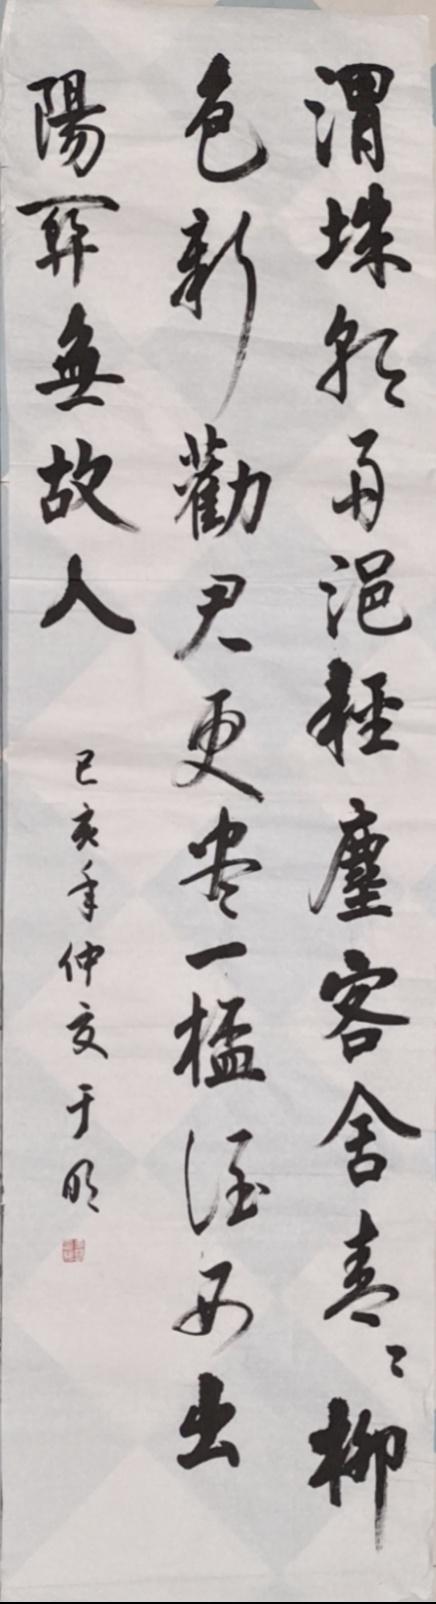 渭城朝雨浥輕塵客舍青々柳
色新勸君更尽一杯酒西出
陽關無故人
己亥年仲夏于明